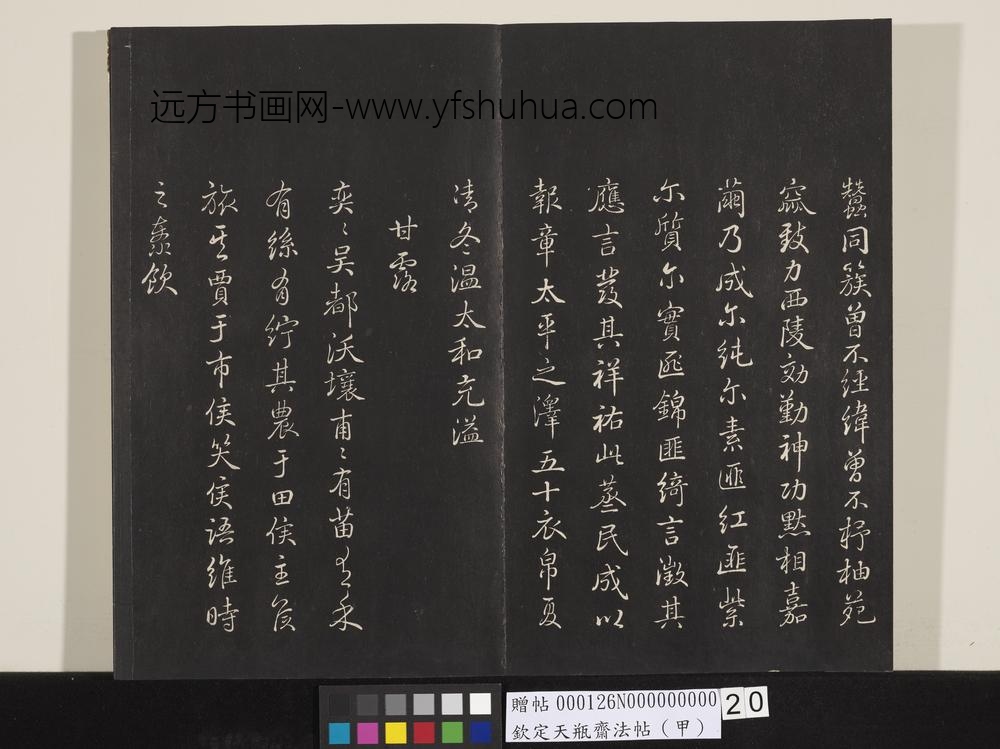 远方书画网-www.yfshuhua.com
蠶同簇曾不經緯曾不杼柚苑
窳致力西陵効勤神功默相嘉
繭乃成尔純尔素匪紅匪紫
尔質尔實匪錦匪綺言徵其
應言發其祥祐此蒸民成以
報章太平之澤五十衣帛夏
清冬温太和充溢
甘露
奕〻吴都沃壤甫〻有苗有禾
有絲有紵其農于田侯主侯
旅其賈于市侯笑侯語維時
之泰飲
贈帖 000126N000000000 20
欽定天瓶齋法帖（甲）